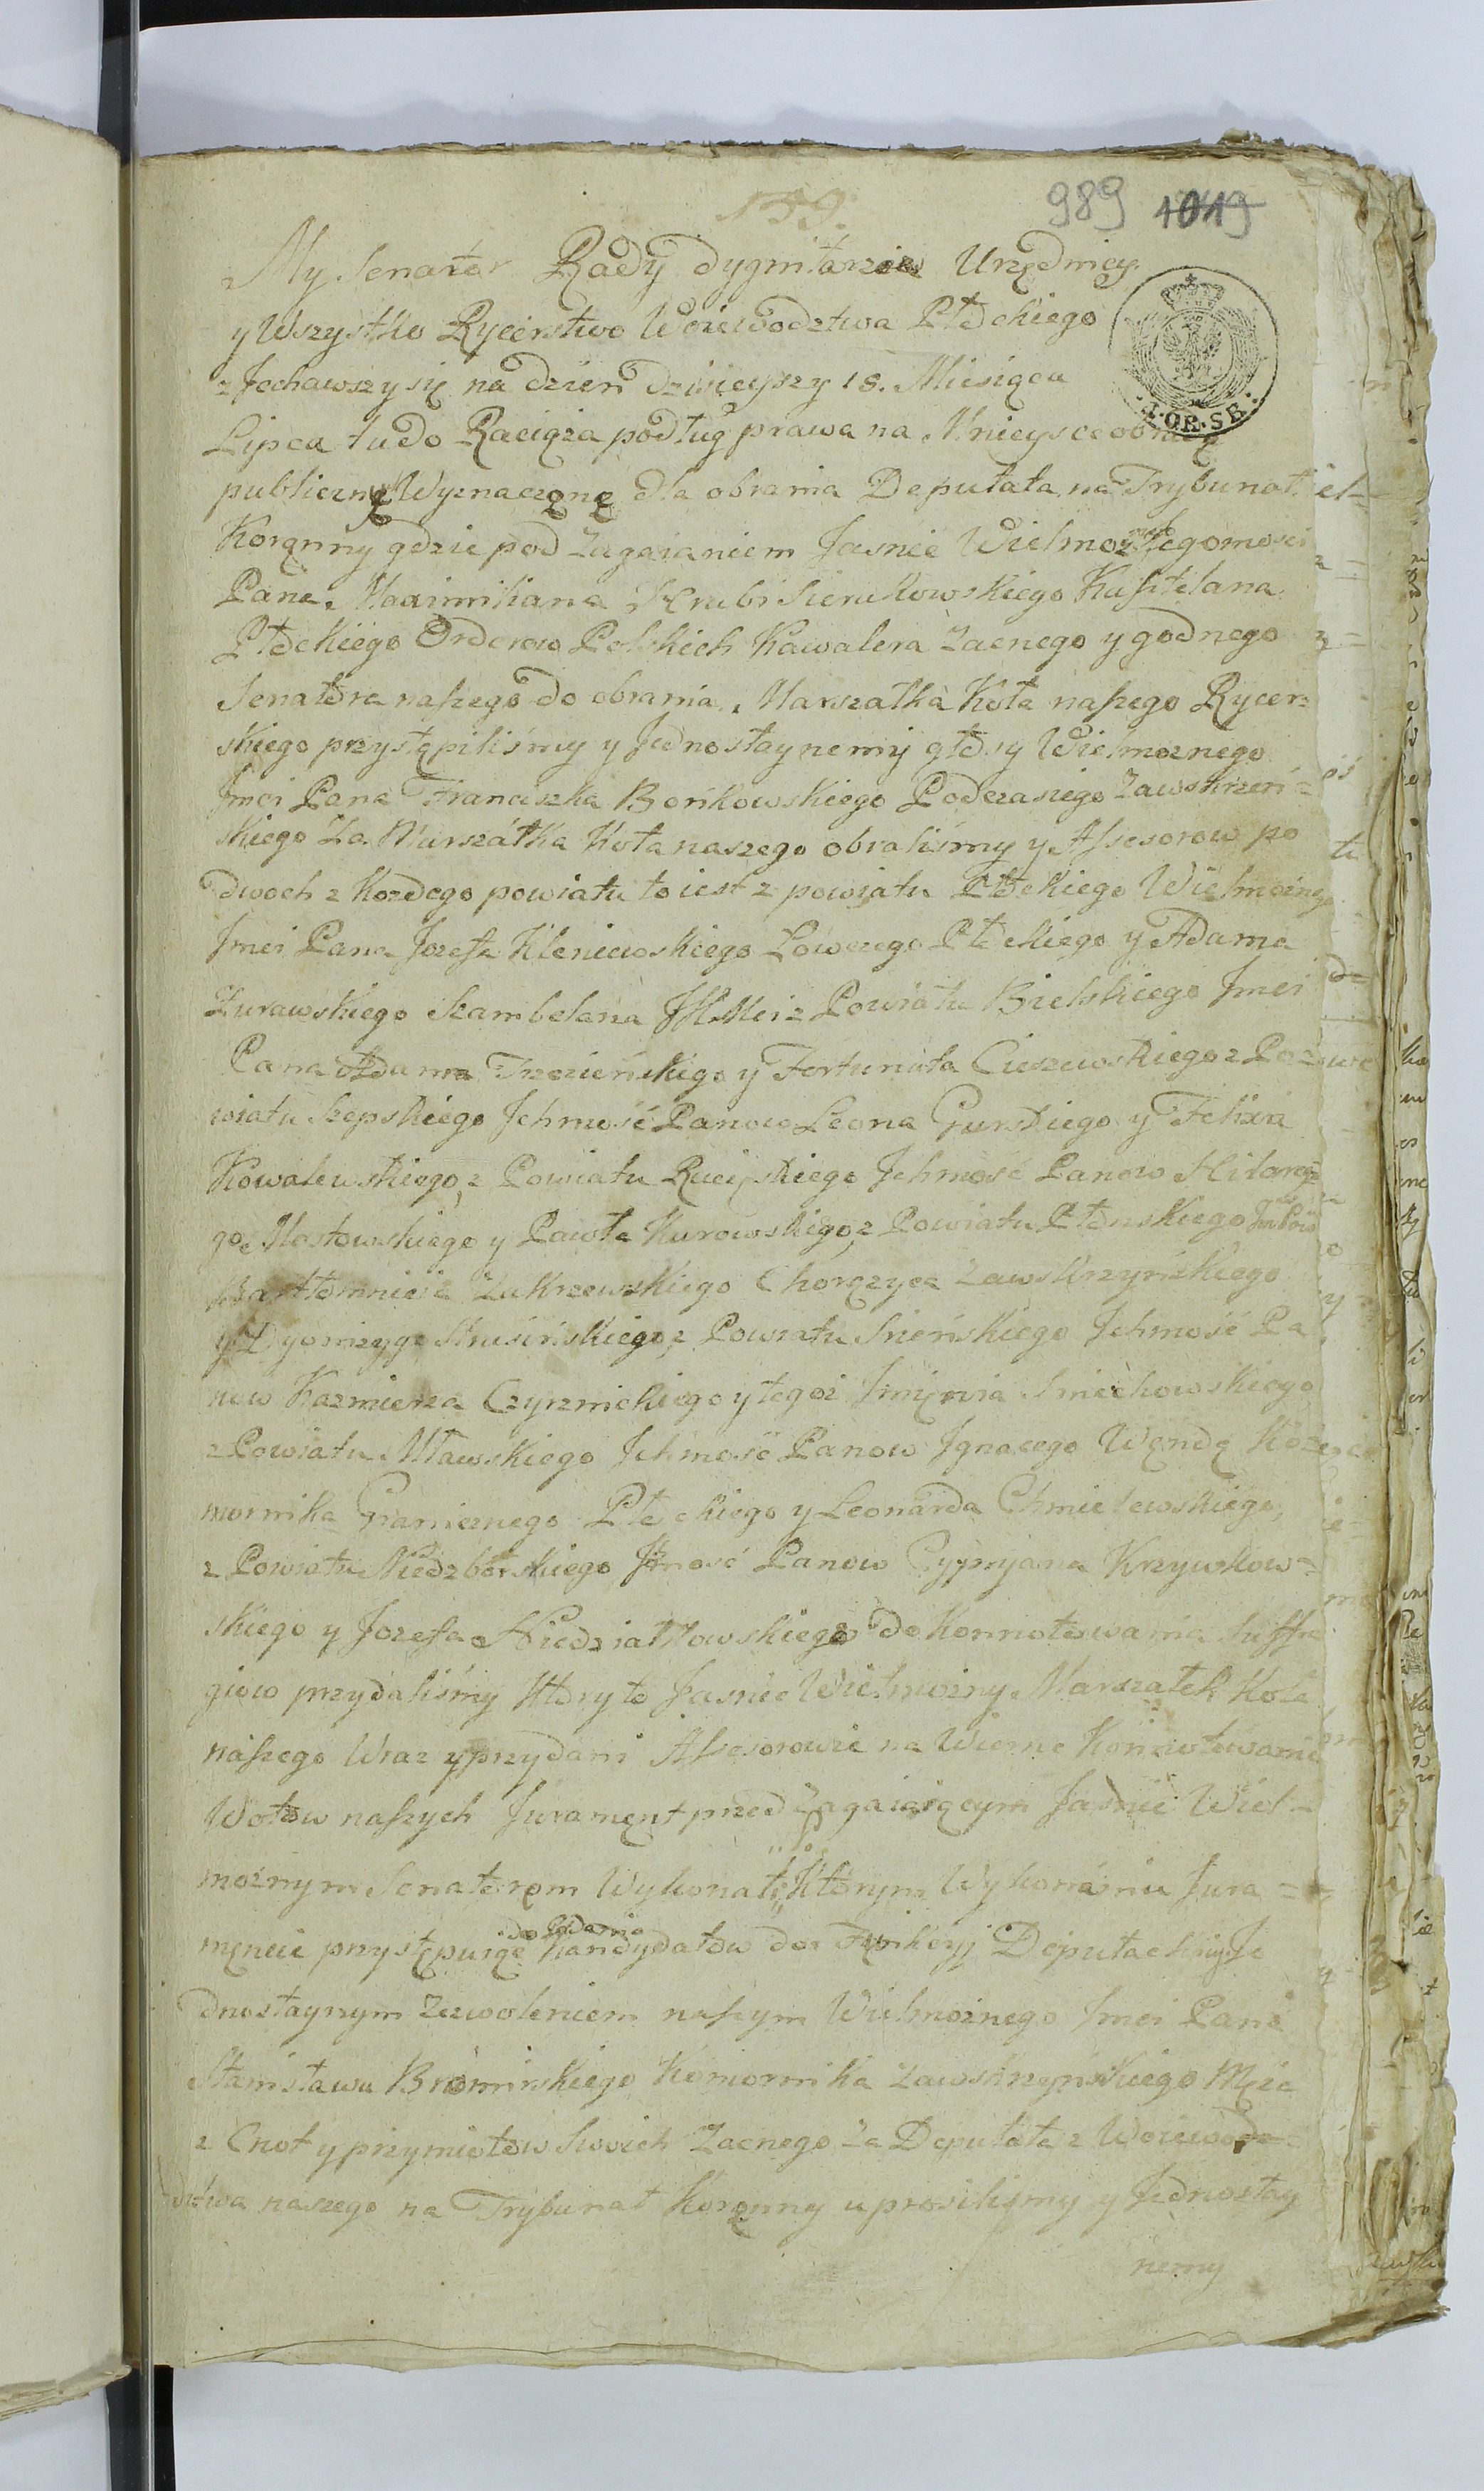 989 1019
159.
My Senator Rady Dygnitarze Urzędnicy
y Wszystko Rycerstwo Woiewodztwa Płockiego
zJechawszy się na dzień dzisieyszy 18. Miesiąca
Lipca tu do Raciąża podług prawa na Mnieysce obrad
publiczne Wyznaczone dla obrania Deputata na Trybunał
Koronny gdzie pod Zagaianiem Jasnie Wielmoznego Jegomosci
Pana Maximiliana Hrabi Sierakowskiego Kasztelana
Płockiego Orderow Polskich Kawalera Zacnego y godnego
Senatora naszego do obrania Marszałka Koła naszego Rycer=
skiego przystąpiliśmy y Jednostaynemi głosy Wielmoznego
Jmci Pana Franciszka Bońkowskiego Podczaszego Zawskrzeń=
skiego Za Marszałka Koła naszego obraliśmy y Assesorow po
dwoch z Kozdego powiatu to iest z powiatu Płockiego Wielmożnego
Jmci Pana Jozefa Kleniewskiego Łowczego Płockiego y Adama
Zurawskiego Szambelana JKMci z Powiatu Bielskiego Jmci
Pana Adama Trzcieńskigo y Fortunata Cieszewskiego z Po=
wiatu Szrpskiego Jchmość Panow Leona Gurskiego y Felixa
Kowalewskiego, z Powiatu Raciąskiego Jchmość Panow Hilareg=
go Mostowskiego y Pawła Kurowskiego, z Powiatu Płonskiego
Bartłomnieia Zakrzewskiego Chorązyca Zawskrzyńskiego
y Dyonizygo Strusińskiego, z Powiatu Srieńskiego Jchmość Pa
now Kazmierza Czyznickiego y tegoż Jmięnia Smiechowskiego
z Powiatu Mławskiego Jchmość Panow Jgnacego Wendę Ko
mornika Granicznego Płockiego y Leonarda Chmielewskiego,
z Powiatu Niedzborskiego Jchmość Panow Cypryana Krzywkow=
skiego y Jozefa Niedziałkowskiego do Konnotowania Suffra
giow przydaliśmy Ktory to Jasnie Wielmożny Marszałek Koła
naszego Wraz y przydani Assesorowie na Wierne Konnotowanie
Wotow naszych Jurament przed Zagaiaiącym Jasnie Wiel=
możnym Senatorem Wykonali, Po Którym Wykonaniu Jura=
męncie przystępuiąc do Podania Kandydatow do Funkcyi Deputackiey Je
dnostaynym Zezwoleniem naszym Wielmożnego Jmci Pana
Stanisława Bromirskiego Komornika Zawskrzyńskiego Męża
z Cnot y przymiotow Swoich Zacnego Za Deputata z Woiewodz=
dztwa naszego na Trybunał Koronny uprosiliśmy y Jednostay
nemy